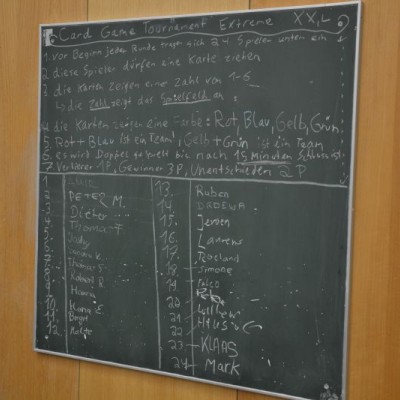 Card Game Tournament Extreme XXL
1. vor Beginn jeder Runde tragen sich 24 Spieler unten ein
2 diese Spieler dürfen eine Karte ziehen
3 die Karten zeigen eine Zahl von 1-6
↳ die Zahl zeigt das Spielfeld an.
4 die Karten zeigen eine Farbe: Rot, Blau, Gelb, Grün
5 Rot + Blau ist ein Team, Gelb + Grün ist ein Team
6 es wird Doppel gespielt bis nach 15 minuten Schluss ist.
7 Verlierer 1P, Gewinner 3P, Unentschieden 2P
1
2 PETER M.
3 Dieter
4 Thomas F
5 Jody
6
7 Thomas S
8 Robert R.
9 Hanna
10 Hans E
11 Birgit
12.
13. Ruben
14
15. Jeroen
16 Laurens
17. Roeland
18 Simone
19
20
21
22
23 KLAAS
24 Mark